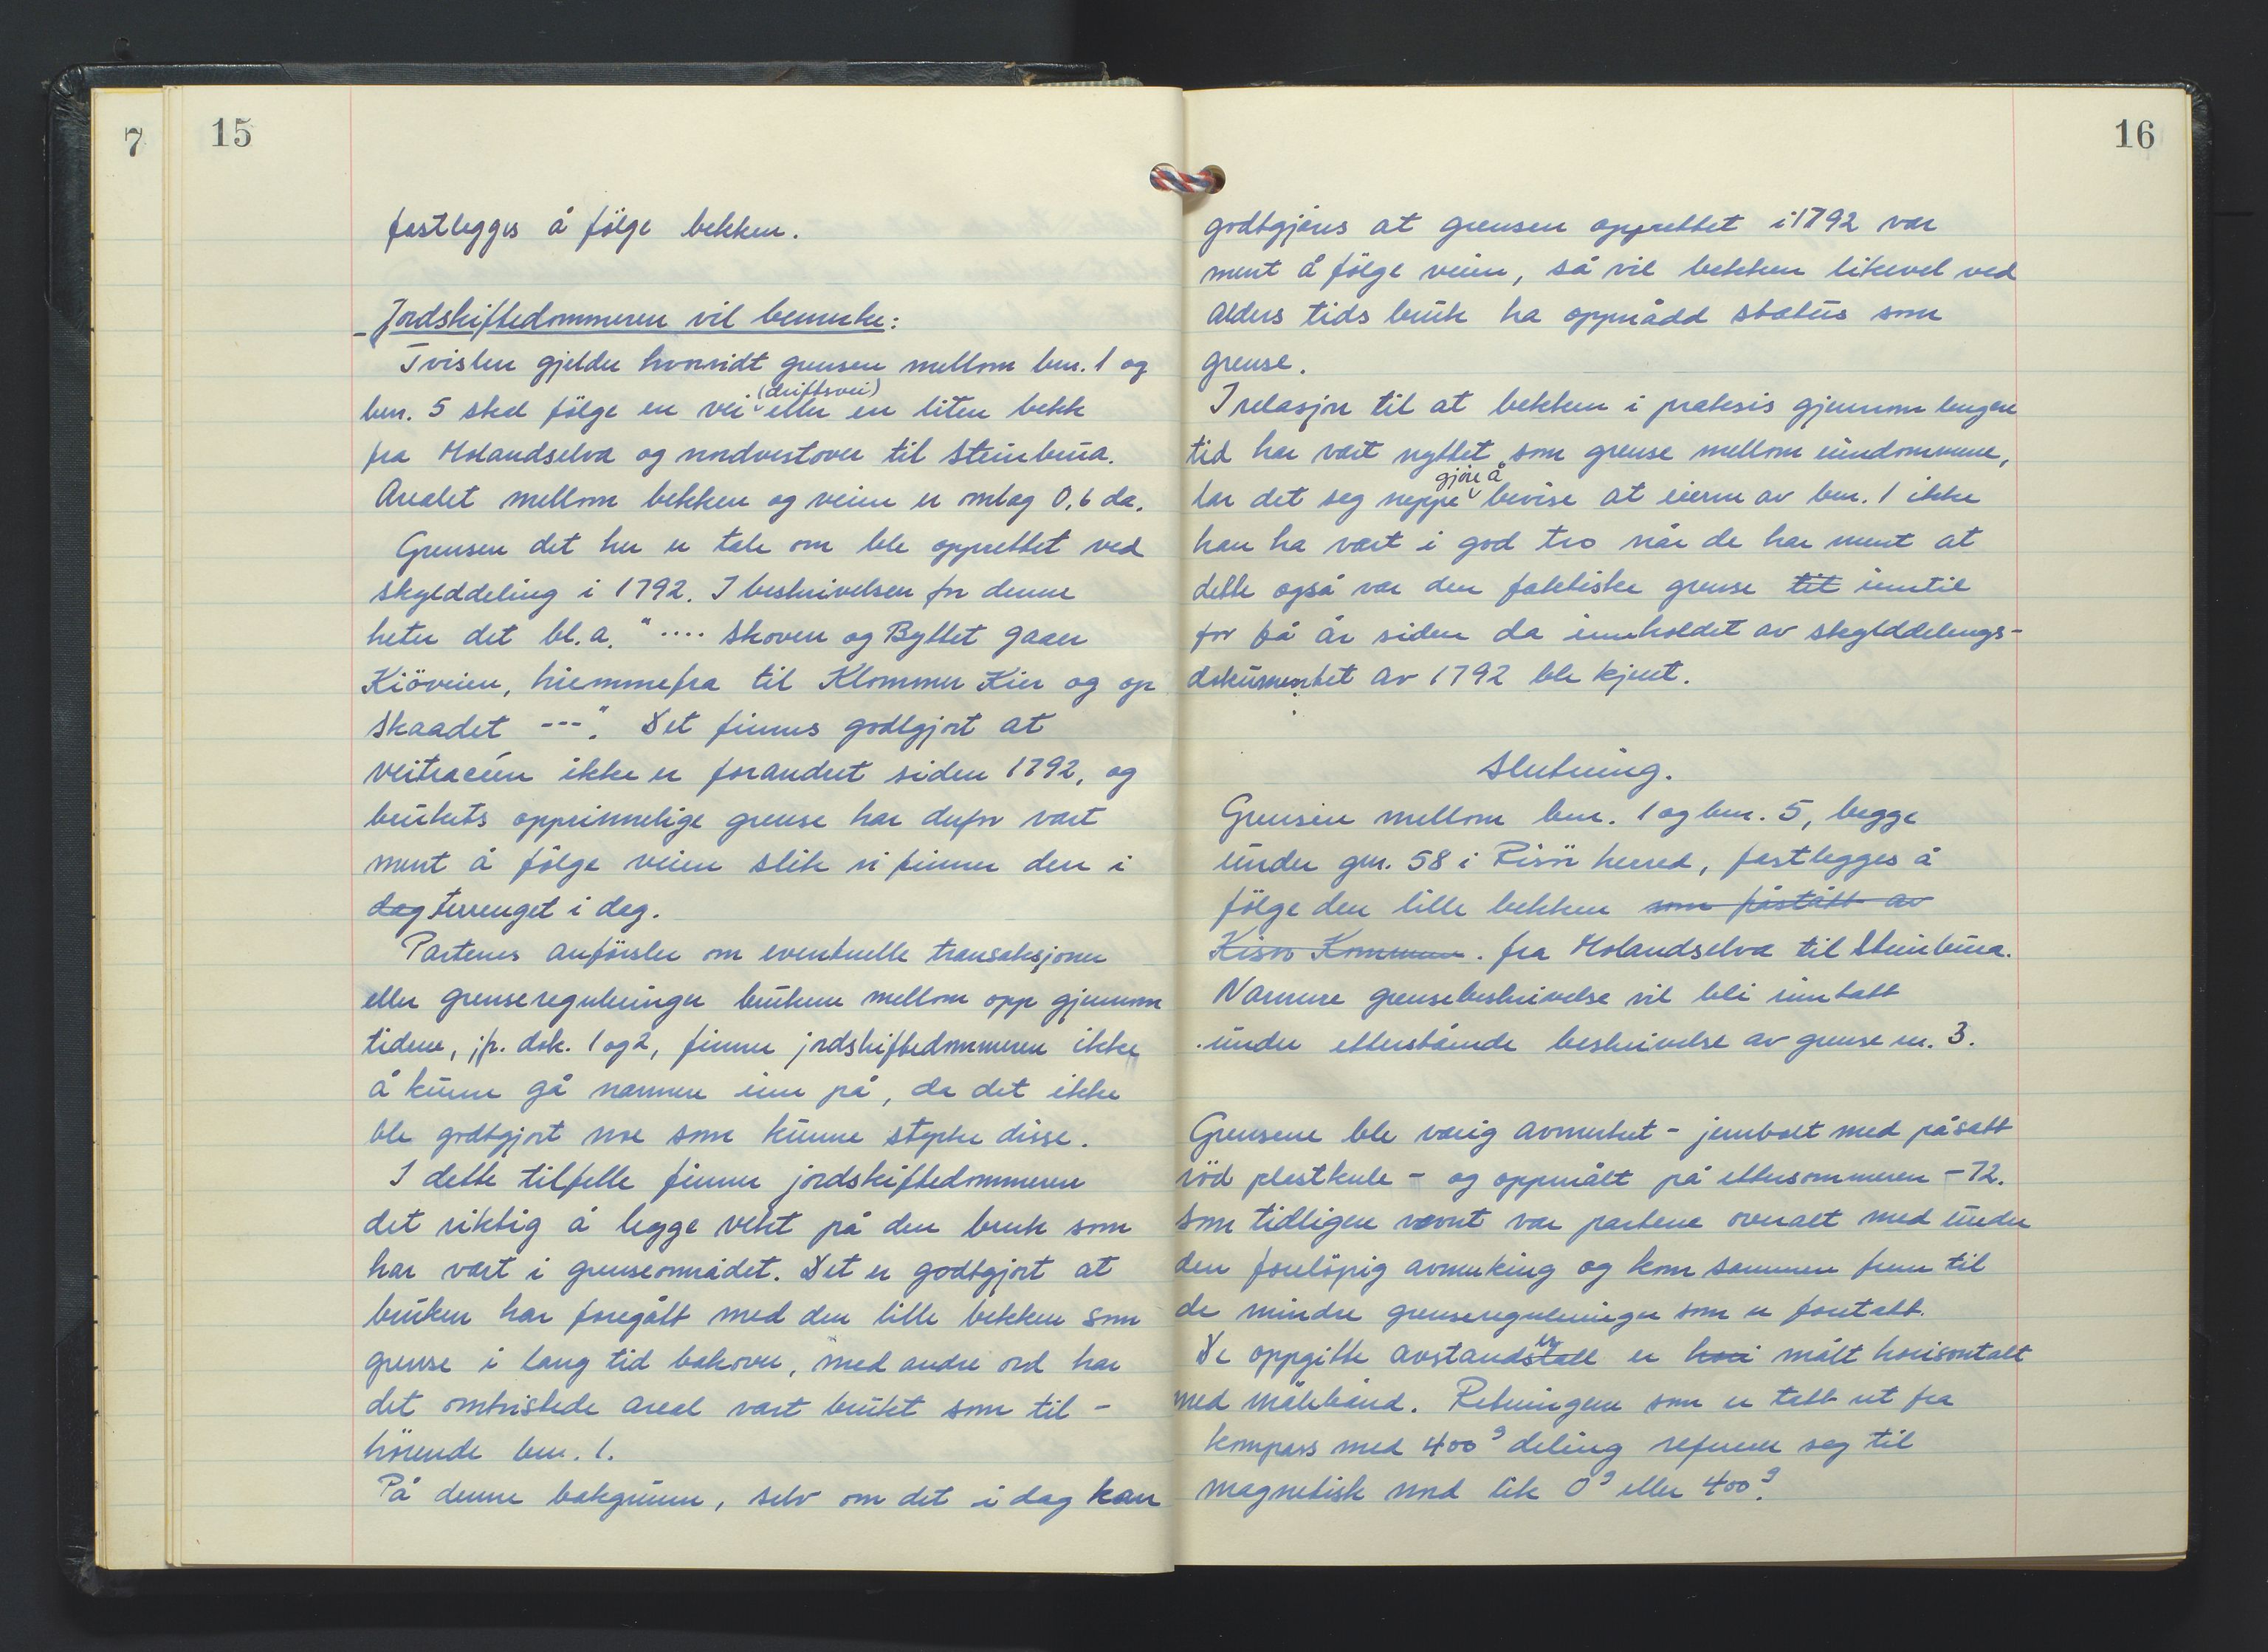 7
15
fastlegges å følge bekken.
Jordskiftedommeren vil bemerke:
Tvisten gjelder hvorvidt grensen mellom bnr. 1 og
(driftsvei)
bnr. 5 skal følge en vei eller en liten bekk
fra Molandselva og nordvestover til Steinbrua.
Arealet mellom bekken og veien er omlag 0,6 da.
Grensen det her er tale om ble opprettet ved
skylddeling i 1792. I beskrivelsen for denne
heter det bl.a. ".... Skoven og Byttet gaaer
Kiöveien, hiemmefra til Klommer Kier og op
Skaadet ---". Det finnes godtgjort at
veitraceén ikke er forandret siden 1792, og
brukets opprinnelige grense har derfor vært
ment å følge veien slik vi finner den i
dag terrenget i dag.
Partenes anførsler om eventuelle transaksjoner
eller grensereguleringer brukene mellom opp gjennom
tidene, jfr. dok. 1 og 2, finner jordskiftedommeren ikke
å kunne gå nærmere inn på, da det ikke
ble godtgjort noe som kunne styrke disse.
I dette tilfelle finner jordskiftedommeren
det riktig å legge vekt på den bruk som
har vært i grenseområdet. Det er godtgjort at
bruken har foregått med den lille bekken som
grense i lang tid bakover, med andre ord har
det omtvistede areal vært brukt som til-
hørende bnr. 1.
På denne bakgrunn, selv om det i dag kan
16
godtgjøres at grensen opprettet i 1792 var
ment å følge veien, så vil bekken likevel ved
alders tids bruk ha oppnådd status som
grense.
I relasjon til at bekken i praksis gjennom lengere
tid har vært nyttet som grense mellom eiendommene,
gjøre å
lar det seg neppe bevise at eierne av bnr. 1 ikke
kan ha vært i god tro når de har ment at
dette også var den faktiske grense til inntil
for få år siden da innholdet av skylddelings-
dokumentet av 1792 ble kjent.
Slutning.
Grensen mellom bnr. 1 og bnr. 5, begge
under gnr. 58 i Risör herred, fastlegges å
følge den lille bekken som påstått av
Risør Kommune. fra Molandselva til Steinbrua.
Nærmere grensebeskrivelse vil bli inntatt
under etterstående beskrivelse av grense nr. 3.
Grensene ble varig avmerket - jernbolt med påsatt
rød plastkule - og oppmålt på ettersommeren -72.
Som tidligere nevnt var partene overalt med under
den foreløpig avmerking og kom sammen frem til
de mindre grensereguleringer som er foretatt.
er
De oppgitte avstandstall er hori målt horisontalt
med målebånd. Retningene som er tatt ut fra
kompass med 400g deling referer seg til
magnetisk nord lik 0g eller 400g.